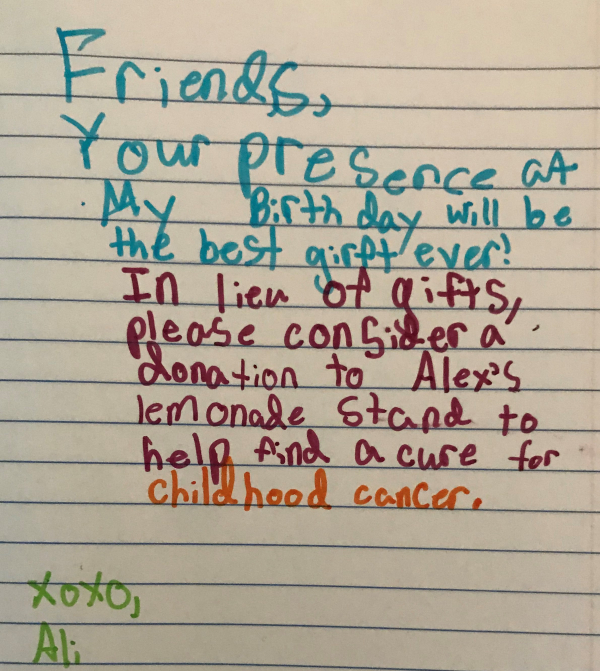 Friends,
Your presence at
My Birthday will be
the best girft ever!
In lieu of gifts,
please consider a
donation to Alex's
lemonade Stand to
help find a cure for
childhood cancer.
xoxo,
Ali